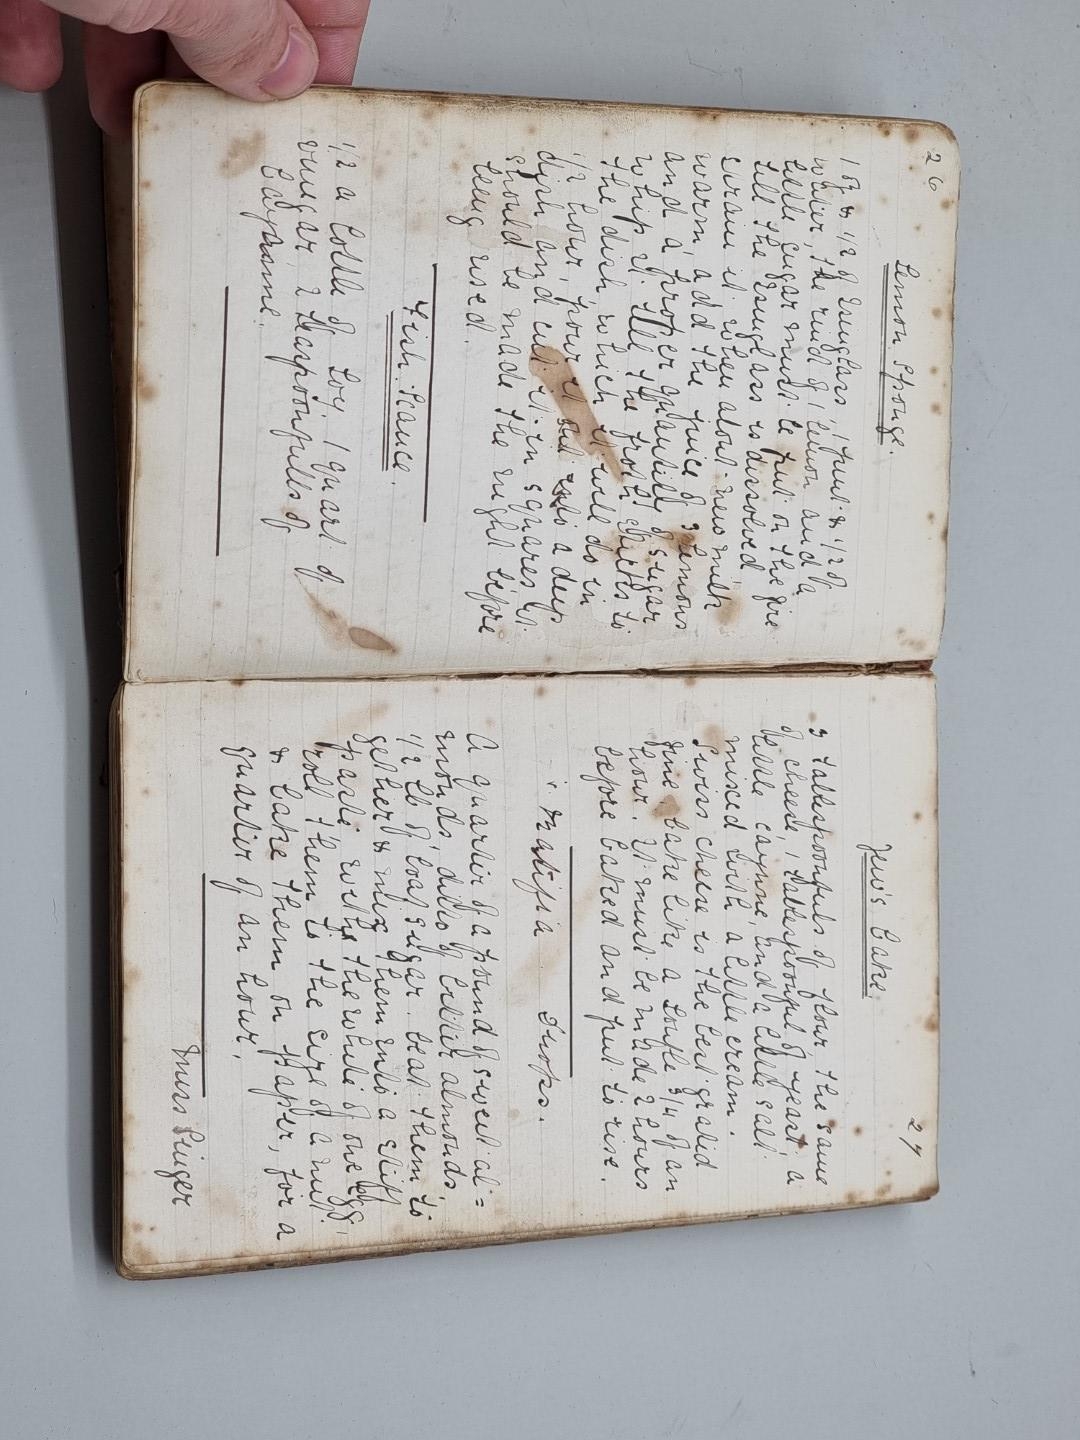 26
Lemon Sponge.
1 oz & 1/2 of Isinglass 1 pint & 1/2 of
water, the rind of 1 lemon and a
little sugar must be put on the fire
till the Isinglass is dissolved
strain it. when about new milk
warm, add the juice of 3 lemons
and a proper quantity of sugar
whip it till the froth sticks to
the dish which it will do in
1/2 hour, pour it out into a deep
dish and cut it in squares it
should be made the night before
being used.
Fish Sauce.
1/2 a bottle of Soy, 1 quart of
vinegar 2 teaspoonfulls of
Cayanne.
27
Cake
3 tablespoonfuls of flour the same
of cheese, 1 tablespoonful of yeast a
little caynne, and a little salt
mixed with a little cream.
Swiss cheese is the best grated
fine bake like a Souffle 3/4 of an
hour. It must be made 2 hours
before baked and put to rise.
Ratifia Drops.
A quarter of a pound of sweet al=
monds, ditto of bitter almonds
1/2 lb of loaf sugar. beat them to
gether & mix them into a stiff
paste with the white of one egg,
roll them to the size of a nut
& bake them on paper, for a
quarter of an hour.
Singer